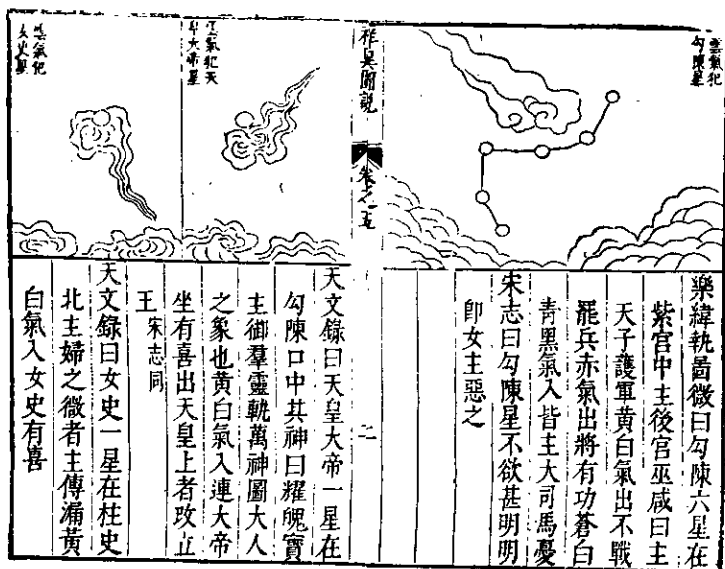 雲氣犯
勾陳星
樂緯執啚徵曰勾陳六星在
紫宮中主後宮巫咸曰主
天子護軍黄白氣出不戰
罷兵赤氣出將有功蒼白
青黑氣入皆主大司馬憂
宋志曰勾陳星不欲甚明明
卽女主惡之
祥異圖說
卷之五
二
雲氣犯天
皇大帝星
雲氣犯
女史星
天文錄曰天皇大帝一星在
勾陳口中其神曰耀魄寶
主御羣靈執萬神圖大人
之象也黄白氣入連大帝
坐有喜出天皇上者改立
王宋志同
天文錄曰女史一星在柱史
北主婦之微者主傳漏黄
白氣入女史有喜